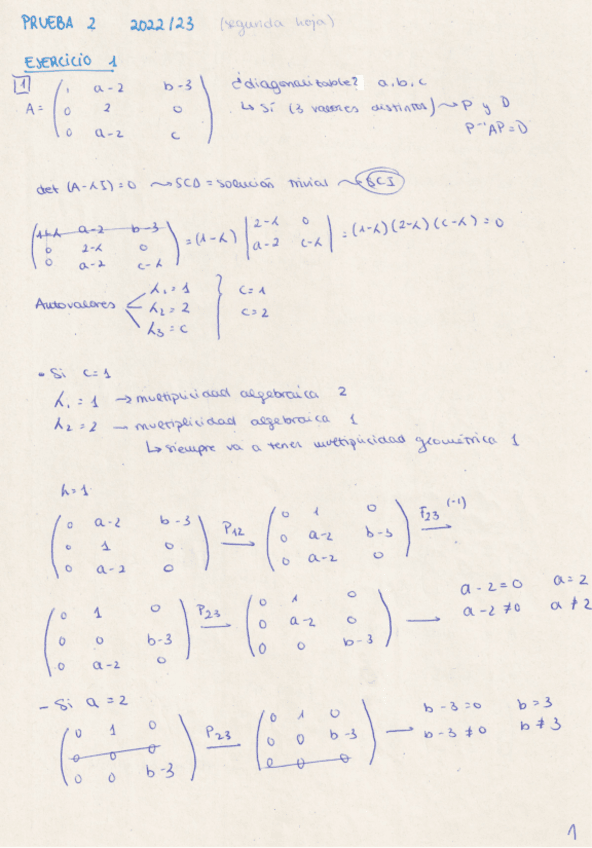 PRUEBA 2 2022/23 (segunda hoja)
EJERCICIO 1
1 ¿diagonalizable? a, b, c
A = ( 1 a-2 b-3
0 2 0
0 a-2 c )
↳ Sí (3 valores distintos) ⟿ P y D
P⁻¹AP = D
det (A-λI) = 0 ⟿ SCD = solución trivial ⟿ SCI
( 1-λ a-2 b-3
0 2-λ 0
0 a-2 c-λ ) = (1-λ) | 2-λ 0
a-2 c-λ | = (1-λ)(2-λ)(c-λ) = 0
Autovalores λ₁ = 1
λ₂ = 2
λ₃ = c
} c = 1
c = 2
• Si c = 1
λ₁ = 1 → multiplicidad algebraica 2
λ₂ = 2 → multiplicidad algebraica 1
↳ siempre va a tener multiplicidad geométrica 1
λ = 1
( 0 a-2 b-3
0 1 0
0 a-2 0 ) P12 →
( 0 1 0
0 a-2 b-3
0 a-2 0 ) F23 (-1) →
( 0 1 0
0 0 b-3
0 a-2 0 ) P23 →
( 0 1 0
0 a-2 0
0 0 b-3 ) →
a-2 = 0 a = 2
a-2 ≠ 0 a ≠ 2
- Si a = 2
( 0 1 0
0 0 0
0 0 b-3 ) P23 →
( 0 1 0
0 0 b-3
0 0 0 ) →
b-3 = 0 b = 3
b-3 ≠ 0 b ≠ 3
1